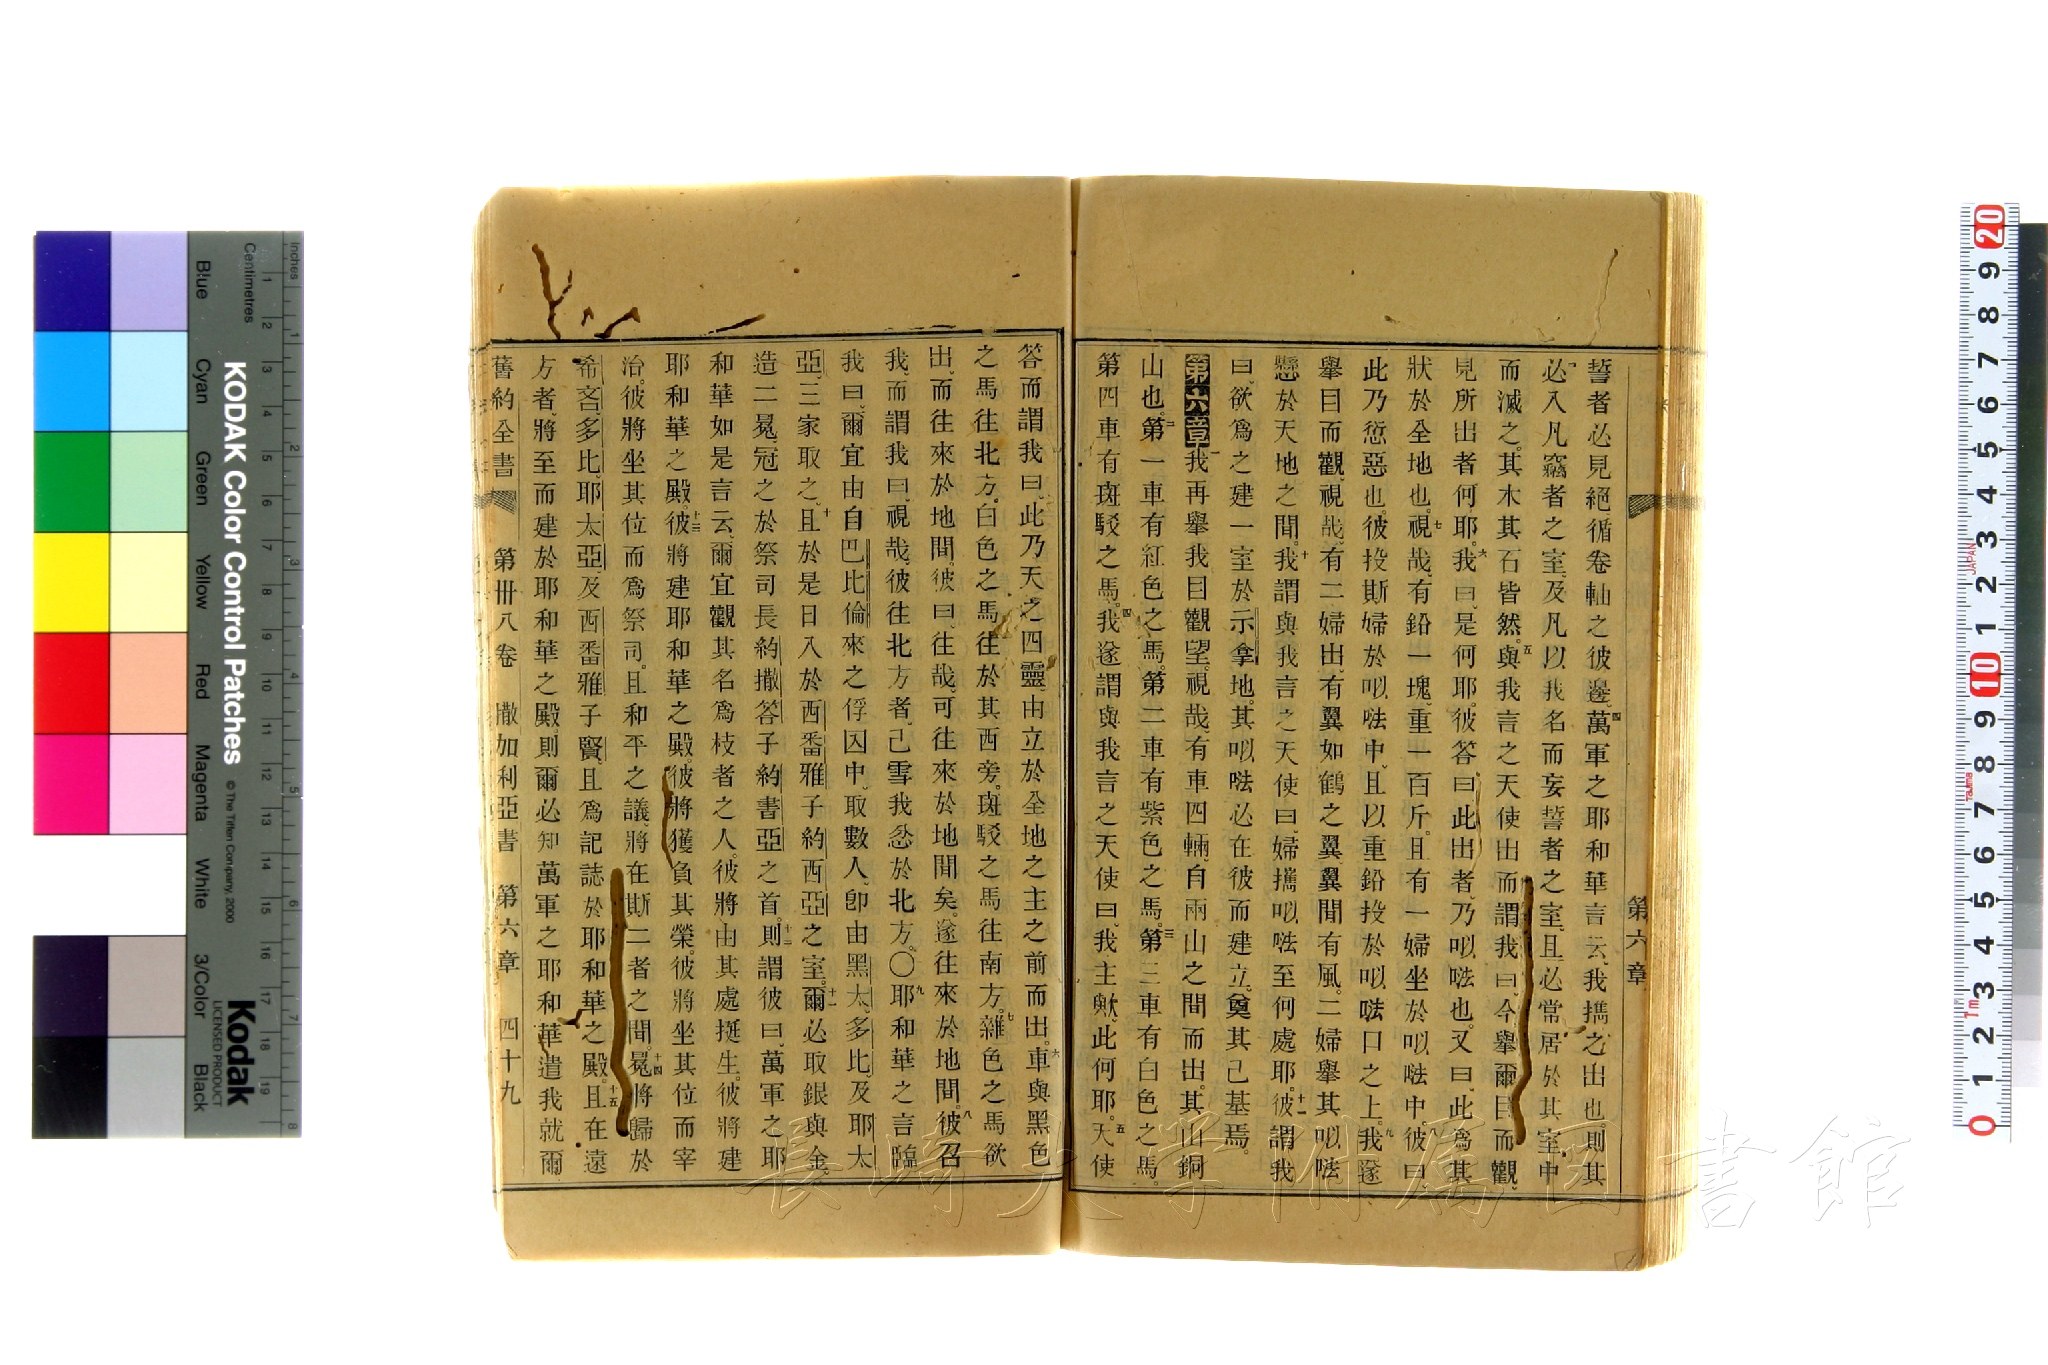 誓者必見絕循卷軸之彼邊、四萬軍之耶和華言云、我擕之出也、則其
必入凡竊者之室、及凡以我名而妄誓者之室、且必常居於其室中
而滅之。其木其石皆然。五與我言之天使出而謂我曰、今舉爾目而觀、
見所出者何耶。六我曰、是何耶。彼答曰、此出者、乃㕥㗒也。又曰、此爲其
狀於全地也。七視哉、有鉛一塊、重一百斤。且有一婦坐於㕥㗒中。八彼曰、
此乃愆惡也。彼投斯婦於㕥㗒中、且以重鉛投於㕥㗒口之上。九我遂
舉目而觀、視哉、有二婦出、有翼如鶴之翼、翼間有風。二婦舉其㕥㗒
戀於天地之間。十我謂與我言之天使曰、婦攜㕥㗒至何處耶。十一彼謂我
曰、欲爲之建一室於示拿地。其㕥㗒必在彼而建立、奠其己基焉。
第六章 一我再舉我目觀望。視哉、有車四輛、自兩山之間而出。其山銅
山也。二第一車有紅色之馬。第二車有紫色之馬。三第三車有白色之馬。
第四車有斑駁之馬。四我遂謂與我言之天使曰、我主歟、此何耶。五天使
第六章
答而謂我曰、此乃天之四靈、由立於全地之主之前而出。六車與黑色
之馬往北方。白色之馬往於其西旁。斑駁之馬往南方。七雜色之馬欲
出、而往來於地間。彼曰、往哉、可往來於地間矣。遂往來於地間。八彼召
我而謂我曰、視哉、彼往北方者、己雪我忿於北方。〇九耶和華之言臨
我曰、爾宜由自巴比倫來之俘囚中、取數人、卽由黑太、多比、及耶太
亞、三家取之、十且於是日入於西番雅子約西亞之室。十一爾必取銀與金、
造二冕、冠之於祭司長約撒答子約書亞之首。十二則謂彼曰、萬軍之耶
和華如是言云、爾宜觀其名爲枝者之人。彼將由其處挺生。彼將建
耶和華之殿。十三彼將建耶和華之殿。彼將獲負其榮。彼將坐其位而宰
治。彼將坐其位而爲祭司。且和平之議、將在斯二者之間。十四冕將歸於
希吝、多比、耶太亞、及西番雅子賢、且爲記誌於耶和華之殿。十五且在遠
方者、將至而建於耶和華之殿。則爾必知萬軍之耶和華遣我就爾
舊約全書 第卅八卷 撒加利亞書 第六章 四十九
Inches
Centimetres
KODAK Color Control Patches
© The Tiffen Company, 2000
Kodak
LICENSED PRODUCT
Blue
Cyan
Green
Yellow
Red
Magenta
White
3/Color
Black
JAPAN
Tajima
長崎大学附属図書館